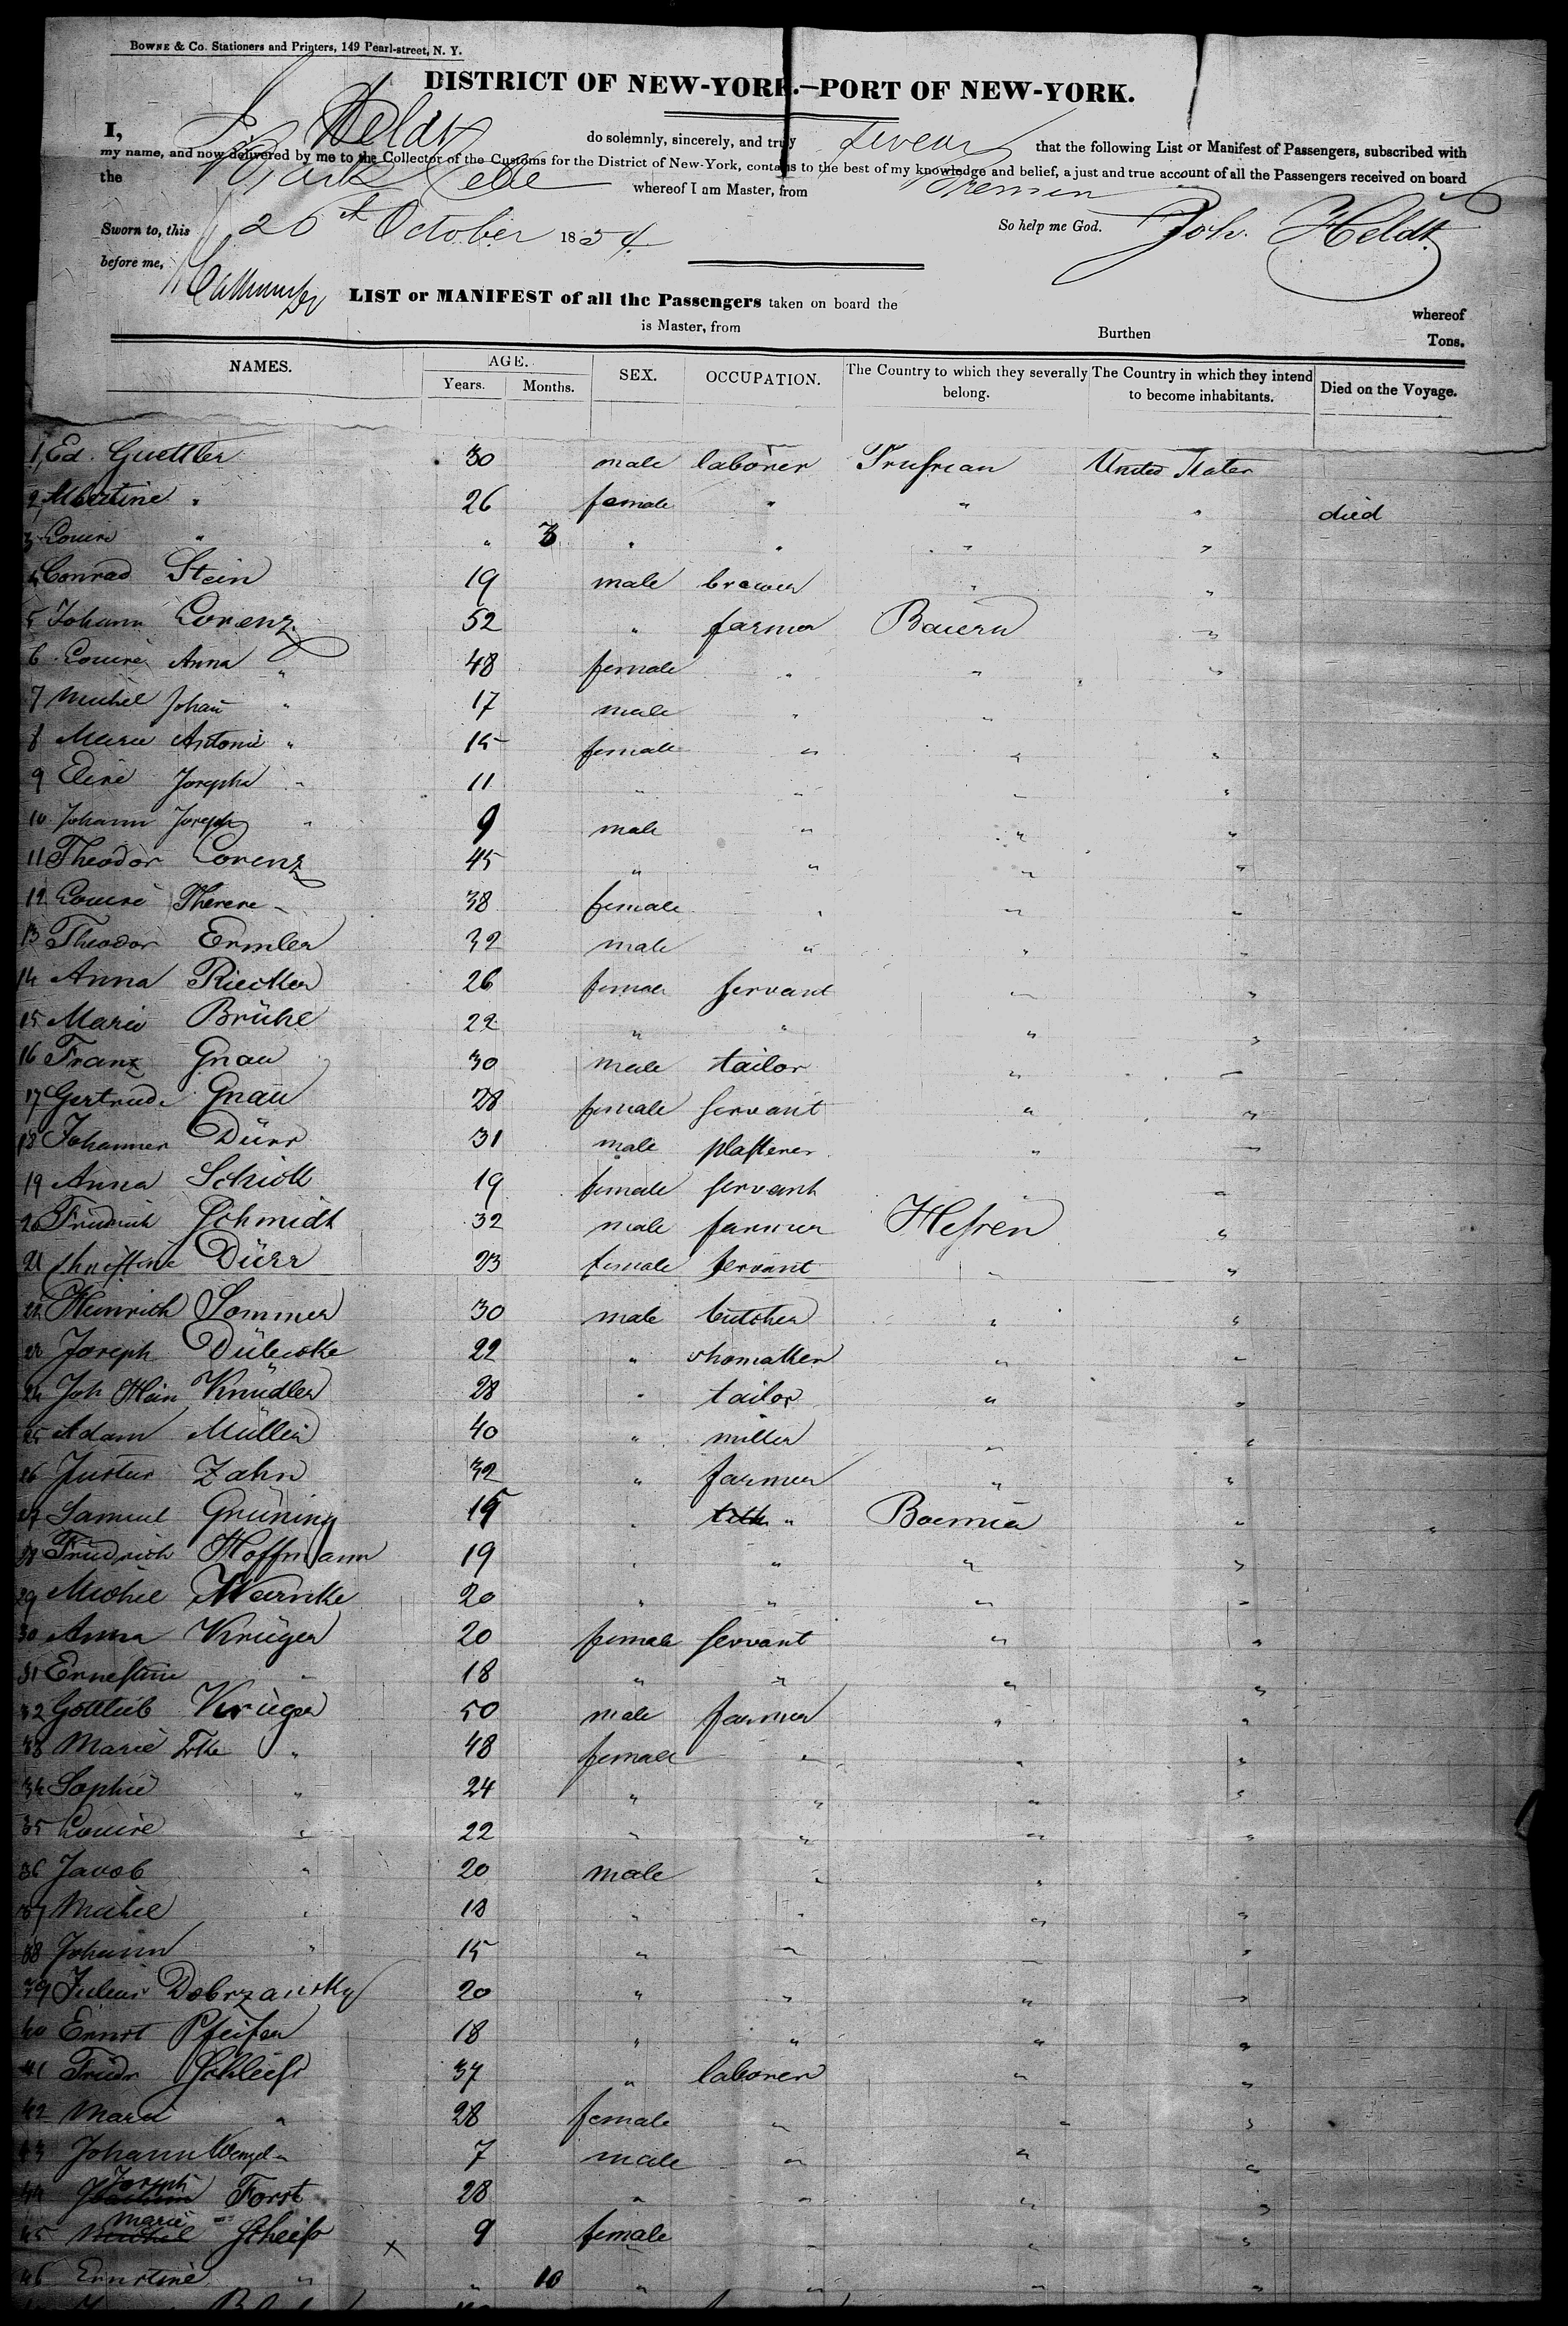 BOWNE & Co. Stationers and Printers, 149 Pearl-street, N. Y.
DISTRICT OF NEW-YORK.—PORT OF NEW-YORK.
I, Joh. Heldt do solemnly, sincerely, and truly swear that the following List or Manifest of Passengers, subscribed with
my name, and now delivered by me to the Collector of the Customs for the District of New-York, contains to the best of my knowledge and belief, a just and true account of all the Passengers received on board
the whereof I am Master, from Bremen
Sworn to, this 26th October 1854. So help me God. Joh. Heldt
before me,
LIST or MANIFEST of all the Passengers taken on board the whereof
is Master, from Burthen Tons.
NAMES. AGE. SEX. OCCUPATION. The Country to which they severally belong. The Country in which they intend to become inhabitants. Died on the Voyage.
Years. Months.
1 Ed. Guettler 30 male laborer Prussian United States
2 " 26 female " " " died
3 Louise " " 3 " " " "
4 Conrad Stein 19 male brewer " "
5 Johann Lorenz 52 " farmer Baiern "
6 Louise Anna " 48 female " " "
7 Michel Johañ " 17 male " " "
8 Marie Antonie " 15 female " " "
9 Elise Josepha " 11 " " " "
10 Johann Joseph " 9 male " " "
11 Theodor Lorenz 45 " " " "
12 Louise Therese " 38 female " " "
13 Theodor Ermler 32 male " " "
14 Anna 26 female servant " "
15 Marie Brühl 22 " " " "
16 Franz Gnau 30 male tailor " "
17 Gertrude Gnau 28 female servant " "
18 Johannes Dürr 31 male plasterer " "
19 Anna Schick 19 female servant " "
20 Friedrich Schmidt 32 male farmer Hessen "
21 Christine Dürr 23 female servant " "
22 Heinrich Sommer 30 male butcher " "
23 Joseph 22 " shomakker " "
24 Joh Hein Knüdler 28 " tailor " "
25 Adam Müller 40 " miller " "
26 Justus Zahn 32 " farmer " "
27 Samuel Grüning 15 " " Boemia " "
28 Friedrich Hoffmann 19 " " " "
29 Michel Warnke 20 " " " "
30 Anna Krüger 20 female servant " "
31 Ernestine " 18 " " " "
32 Gottlieb Krüger 50 male farmer " "
33 Marie " 48 female " " "
34 Sophie " 24 " " " "
35 Louise " 22 " " " "
36 Jacob " 20 male " " "
37 Michel " 18 " " " "
38 Johann " 15 " " " "
39 Julius Dobrzansky 20 " " " "
40 Ernst Pfeifer 18 " " " "
41 Friedr Schleiss 37 " laborer " "
42 Marie " 28 female " " "
43 Johann Wenzel " 7 male " " "
44 Joseph Forst 28 " " " "
45 Marie Scheiss x 9 female " " "
46 Ernstine " " 10 " " " "